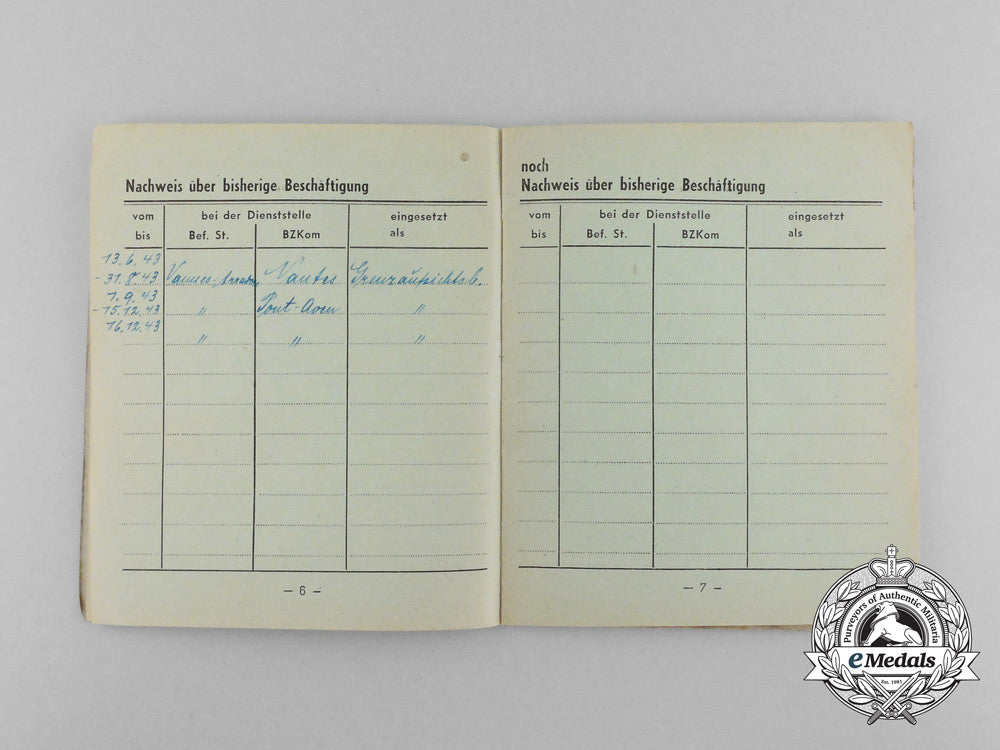 Nachweis über bisherige Beschäftigung
vom bis bei der Dienststelle eingesetzt als
Bef. St. BZKom
13.6.43
-31.8.43 Vannes- Nantes Grenzaufsichtsb.
1.9.43
-15.12.43 " Pont-Aven "
16.12.43
" " "
— 6 —
noch
Nachweis über bisherige Beschäftigung
vom bis bei der Dienststelle eingesetzt als
Bef. St. BZKom
— 7 —
Purveyors of Authentic Militaria
eMedals
Est. 1981